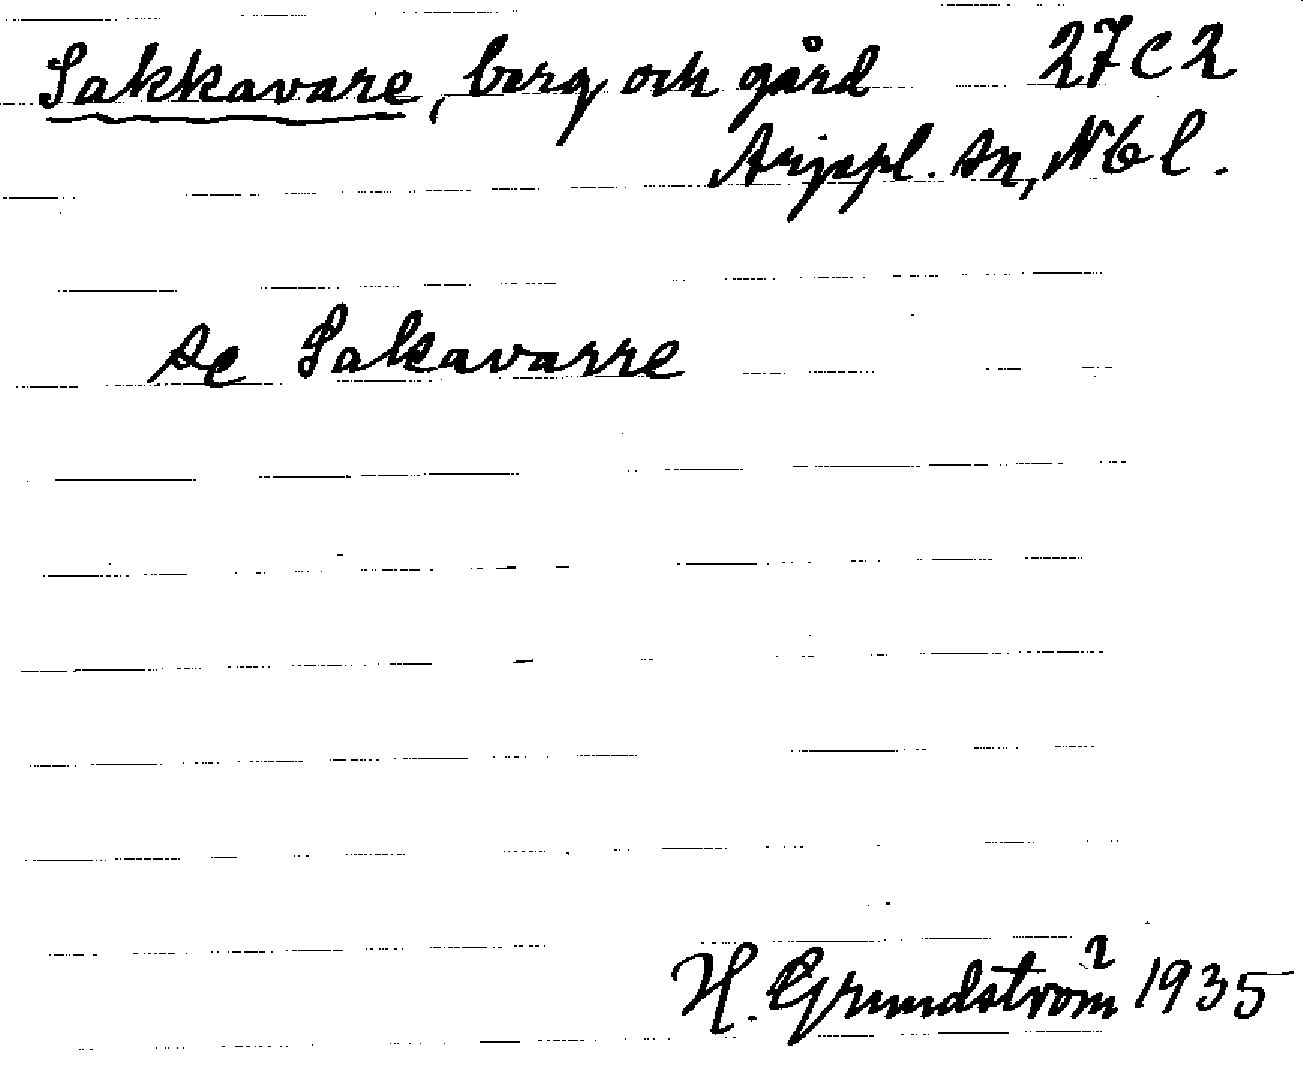 Sakkavare, berg och gård 27C2
Arjepl. sn, Nbl.
se Sakavarre
H. Grundström 1935